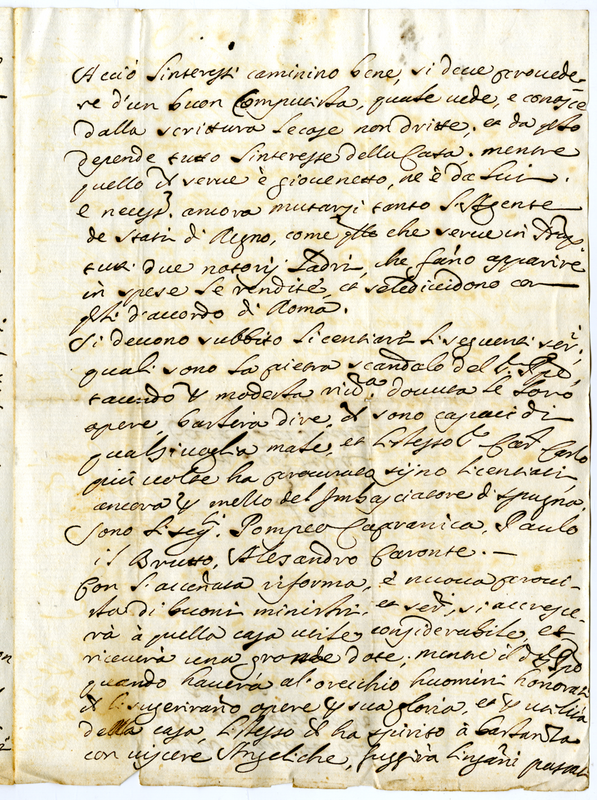 Acciò l'interessi caminino bene, si deve provede-
re d'un buon Computista, quale vede, e conosce
dalla scrittura le cose non dritte, et da qsto
depende tutto l'interesse della Casa. mentre
quello che serve è giovenetto, ne è da lui.
e necess.o ancora mutarsi tanto l'Agente
de stati di Regno, come qllo che serve in
tutti due notorij Ladri, che fanno apparire
in spese le rendite, et se le dividono con
qsti d'accordo di Roma.
Si devono subbito licentiare li seguenti ser.ri
quali sono la pietra scandalo del
tacendo p modesta le loro
opere, basterà dire, che sono capaci di
qualsivoglia male, et l'istesso Car.l Carlo
più volte ha procurato sijno licentiati,
ancora p mezzo del Imbasciatore di Spagna,
Sono li seg.ti Pompeo Capranica, Paulo
il Brutto, Alesandro Caronte. —
Con l'accennata riforma, e nuova provi-
sta di buoni ministri, et ser.ri, si accresce-
rà à quella casa utile considerabile, et
riceverà una grande dote, mentre il
quando haverà al orecchio huomini honorati
che li sugeriranno opere p sua gloria, et p utilità
della casa, l'istesso che ha spirito à bastanza
con viscere Angeliche, fuggirà l'inganni passati